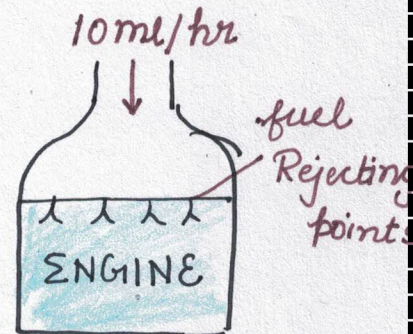 10ml/hr
fuel
Rejecting
points
ENGINE